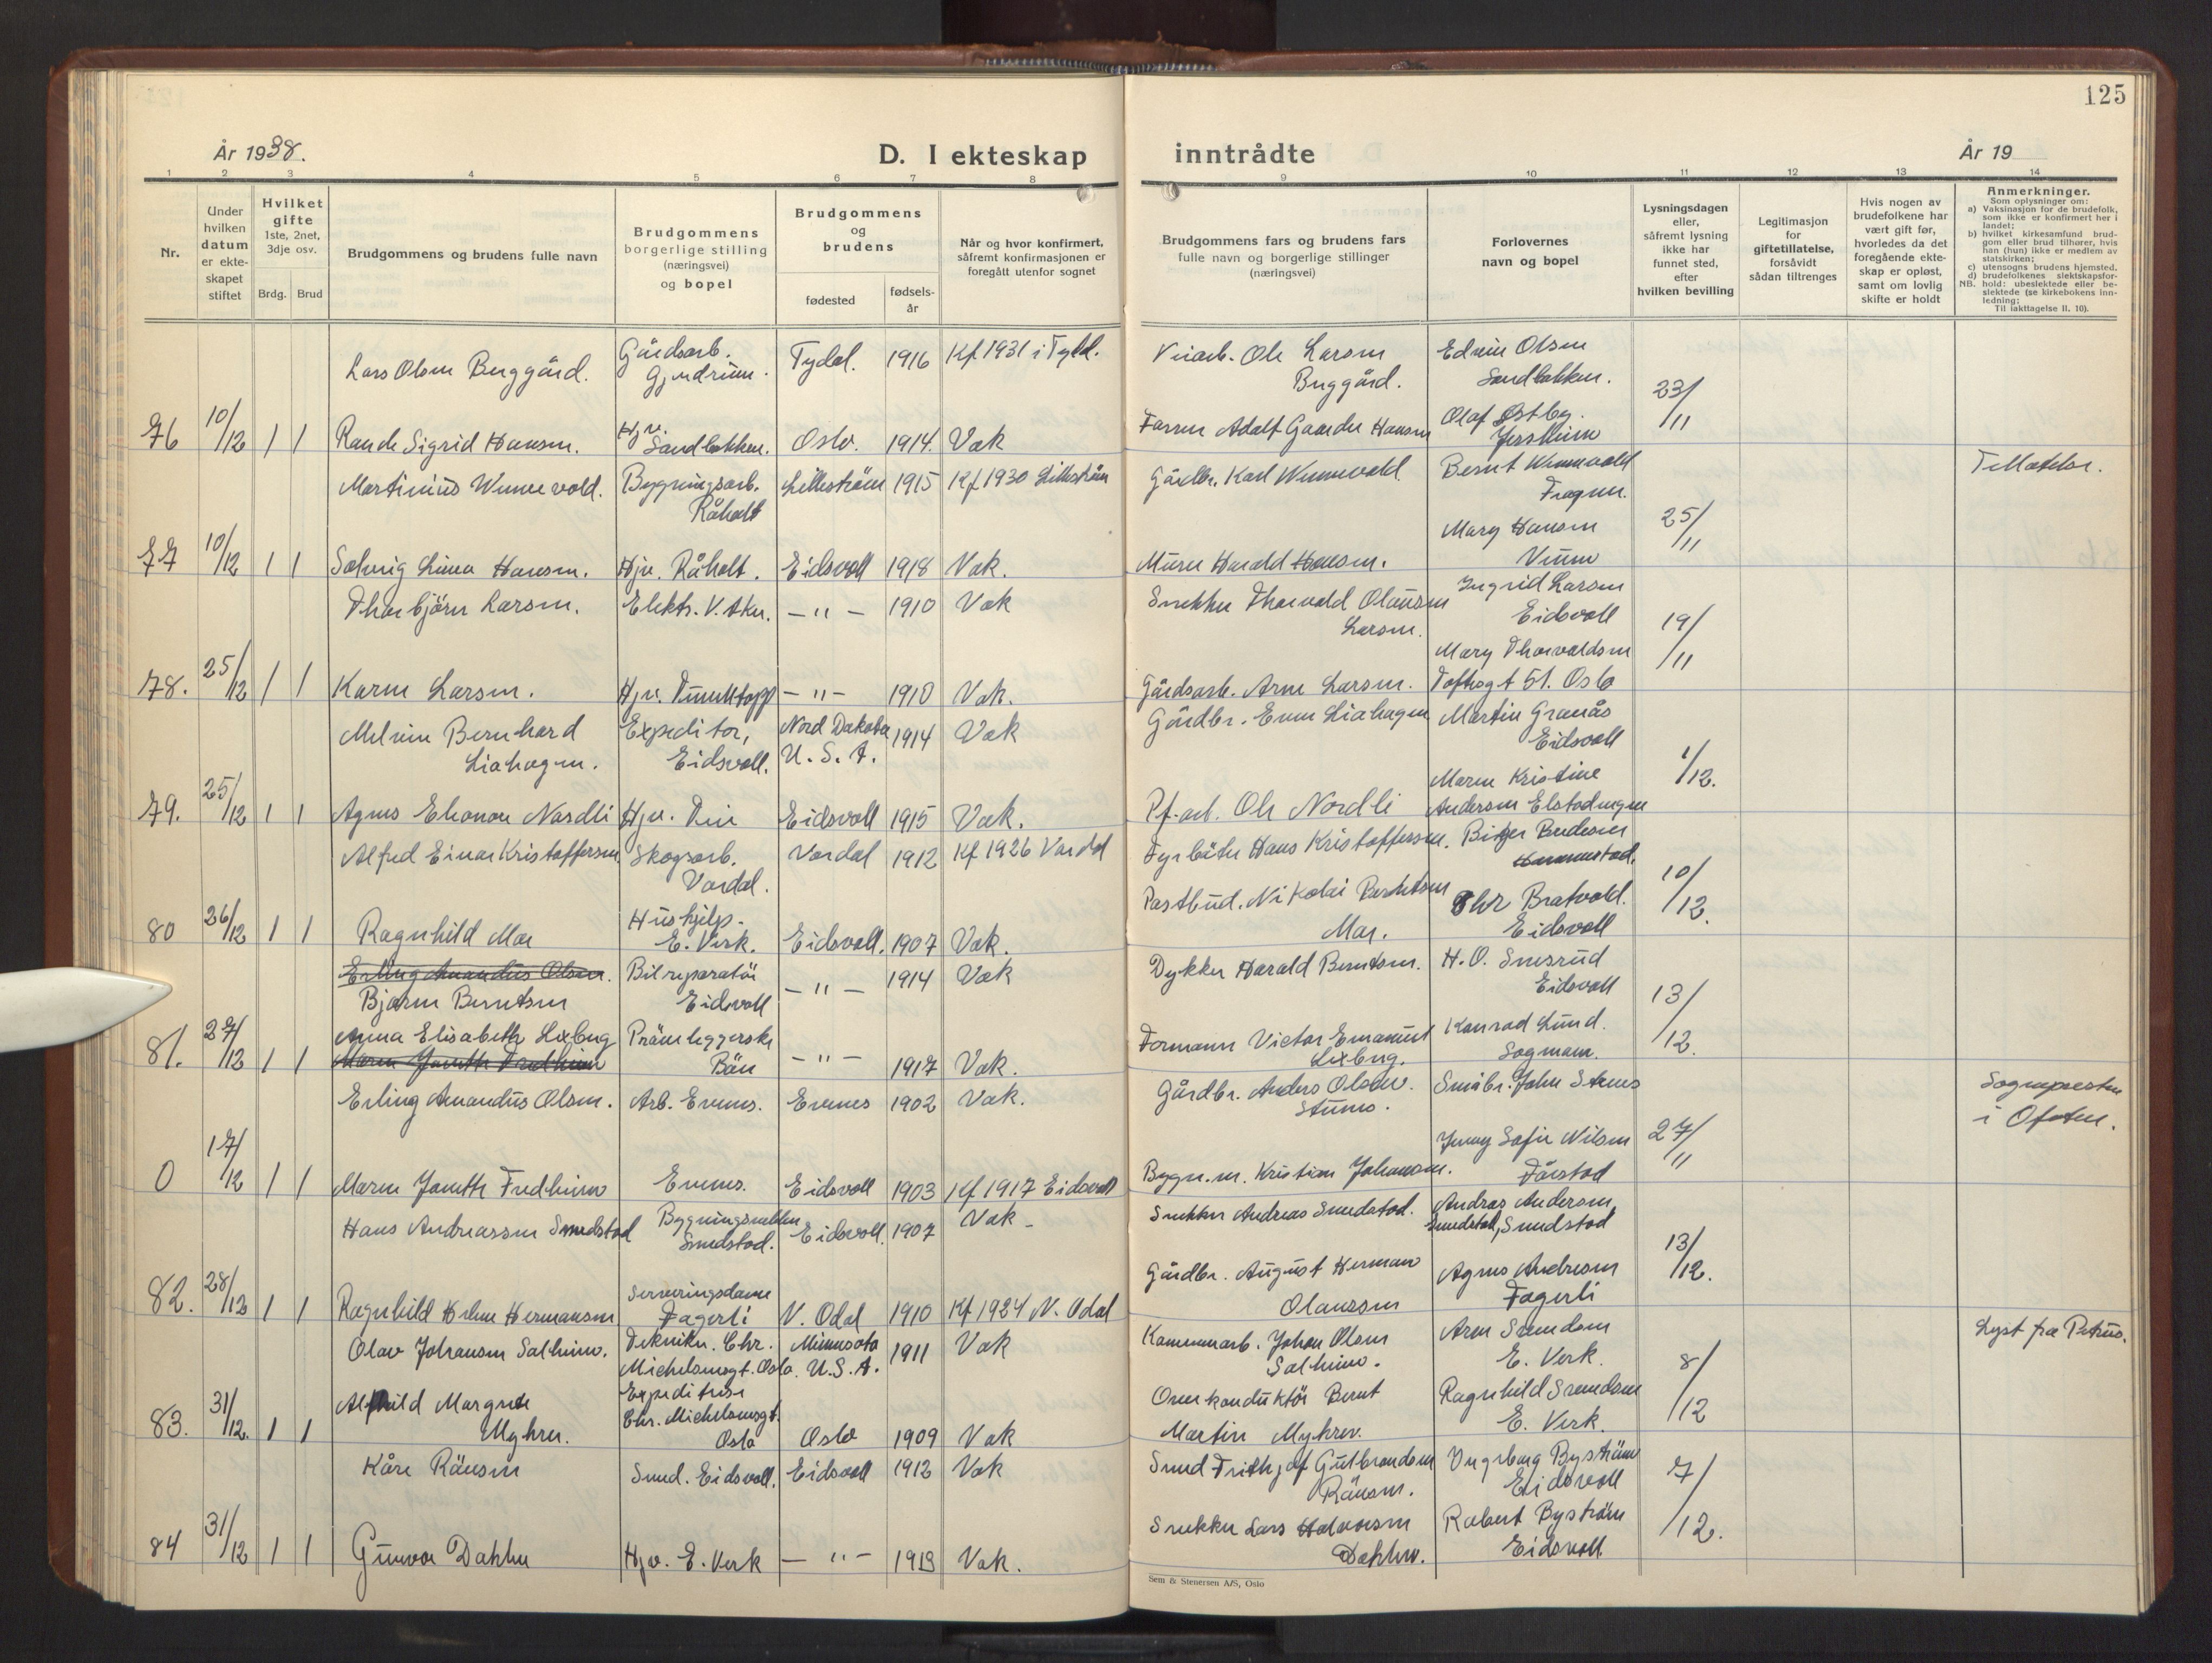 125
År 1938.
D. I ekteskap
inntrådte
År 19
1 2 3 4 5 6 7 8 9 10 11 12 13 14
Nr.
Under
hvilken
datum
er ekte-
skapet
stiftet
Hvilket
gifte
1ste, 2net,
3dje osv.
Brdg. Brud
Brudgommens og brudens fulle navn
Brudgommens
borgerlige stilling
(næringsvei)
og bopel
Brudgommens
og
brudens
fødested
fødsels-
år
Når og hvor konfirmert,
såfremt konfirmasjonen er
foregått utenfor sognet
Brudgommens fars og brudens fars
fulle navn og borgerlige stillinger
(næringsvei)
Forlovernes
navn og bopel
Lysningsdagen
eller,
såfremt lysning
ikke har
funnet sted,
efter
hvilken bevilling
Legitimasjon
for
giftetillatelse,
forsåvidt
sådan tiltrenges
Hvis nogen av
brudefolkene har
vært gift før,
hvorledes da det
foregående ekte-
skap er opløst,
samt om lovlig
skifte er holdt
Anmerkninger.
Som oplysninger om:
a) Vaksinasjon for de brudefolk,
som ikke er konfirmert her i
landet;
b) hvilket kirkesamfund brud-
gom eller brud tilhører, hvis
han (hun) ikke er medlem av
statskirken;
c) utensogns brudens hjemsted.
d) brudefolkenes slektskapsfor-
NB. hold: ubeslektede eller be-
slektede (se kirkebokens inn-
ledning;
Til iakttagelse II. 10).
Lars Olsen Berggård. Gårdsarb. Gjerdrum. Tydal. 1916 Kf. 1931 i Tydal. Ole Larsen Berggård. Edvin Olsen Sandbakken.
76 10/12 1 1 Sigrid Hansen. Hjv. Sandbakken. Oslo. 1914. Vak Adolf Gaarder Hansen Olaf Østby. Jessheim 23/11
Martinius Wennevold. Bygningsarb. Råholt Lillestrøm 1915 Kf 1930 Lillestrøm Gårdbr. Karl Wennevold. Bernt Wennevold Frogner.
77 10/12 1 1 Solveig Hansen. Hjv. Råholt. Eidsvoll 1918 Vak. Murer Harald Hansen. Mary Hansen 25/11
Thorbjörn Larsen. Elektr. V. Aker. — " — 1910 Vak Snekker Thorvald Olausen Larsen. Ingrid Larsen Eidsvoll
78. 25/12 1 1 Karen Larsen. Hjv. — " — 1910 Vak. Gårdsarb. Arne Larsen. Mary Thorvaldsen Toftesgt 51. Oslo 19/11
Melvin Bernhard Liahagen. Expeditor, Eidsvoll. Nord Dakota U. S. A. 1914 Vak Gårdbr. Even Liahagen Martin Granås Eidsvoll
79. 25/12 1 1 Agnes Eleonore Nordli Hjv. Eidsvoll 1915 Vak. Ole Nordli Maren Kristine Andersen 1/12.
Alfred Einar Kristoffersen Skogsarb. Vardal. Vardal 1912 Kf 1926 Vardal Fyrbøter Hans Kristoffersen.
80 26/12 1 1 Ragnhild Moe Hushjelp. E. Verk. Eidsvoll. 1907 Vak. Postbud. Nikolai Moe. Bratvold. Eidsvoll 10/12.
Erling Amandus Olsen. Bjarne Berntsen Bilreparatör Eidsvoll — " — 1914 Vak Dykker Harald Berntsen. H. O. Snesrud Eidsvoll
81. 27/12 1 1 Anna Elisabeth Lexberg Maren Janette Fredheim Bön — " — 1917 Vak. Formann Victor Emanuel Lexberg. Konrad Lund. Sogmoen. 13/12.
Erling Amandus Olsen. Arb. Evenes. Evenes 1902 Vak. Gårdbr. Anders Olsen. Småbr. John Sogneprestene i Ofoten.
0 17/12 1 1 Maren Janette Fredheim Evenes. Eidsvoll 1903 Kf 1917 Eidsvoll Bygn.m. Kristian Johansen. Jenny Sofie Nilsen 27/11
Hans Andreassen Smedstad Smedstad. Eidsvoll. 1907 Vak. Snekker Andreas Smedstad. Andreas Andersen, Smedstad
82. 28/12 1 1 Ragnhild Helene Hermansen Serveringsdame Fagerli V. Odal 1910 Kf 1924 N. Odal Gårdbr. August Herman Olaussen Agnes Andresen Fagerli 13/12.
Olav Johansen Solheim. Tekniker. Chr. Michelsensgt. Oslo. Minnesota U.S.A. 1911 Vak Johan Olsen Solheim. Arne Svendsen E. Verk. Lyst fra Petrus.
83. 31/12. 1 1 Alfhild Margrete Myhrer. Expeditrise Chr. Michelsensgt. Oslo Oslo 1909 Vak Overkonduktör Bernt Martin Myhrer. Ragnhild Svendsen E. Verk. 8/12
Kåre Rånsen Smed. Eidsvoll. Eidsvoll 1912 Vak Smed Frithjof Gulbrandsen Rånsen. Ingeborg Byström Eidsvoll
84 31/12 1 1 Gunvor Dahlen Hjv. E. Verk — " — 1913 Vak. Snekker Lars Halvorsen Dahlen. Robert Byström Eidsvoll. 7/12.
Sem & Stenersen A/S, Oslo